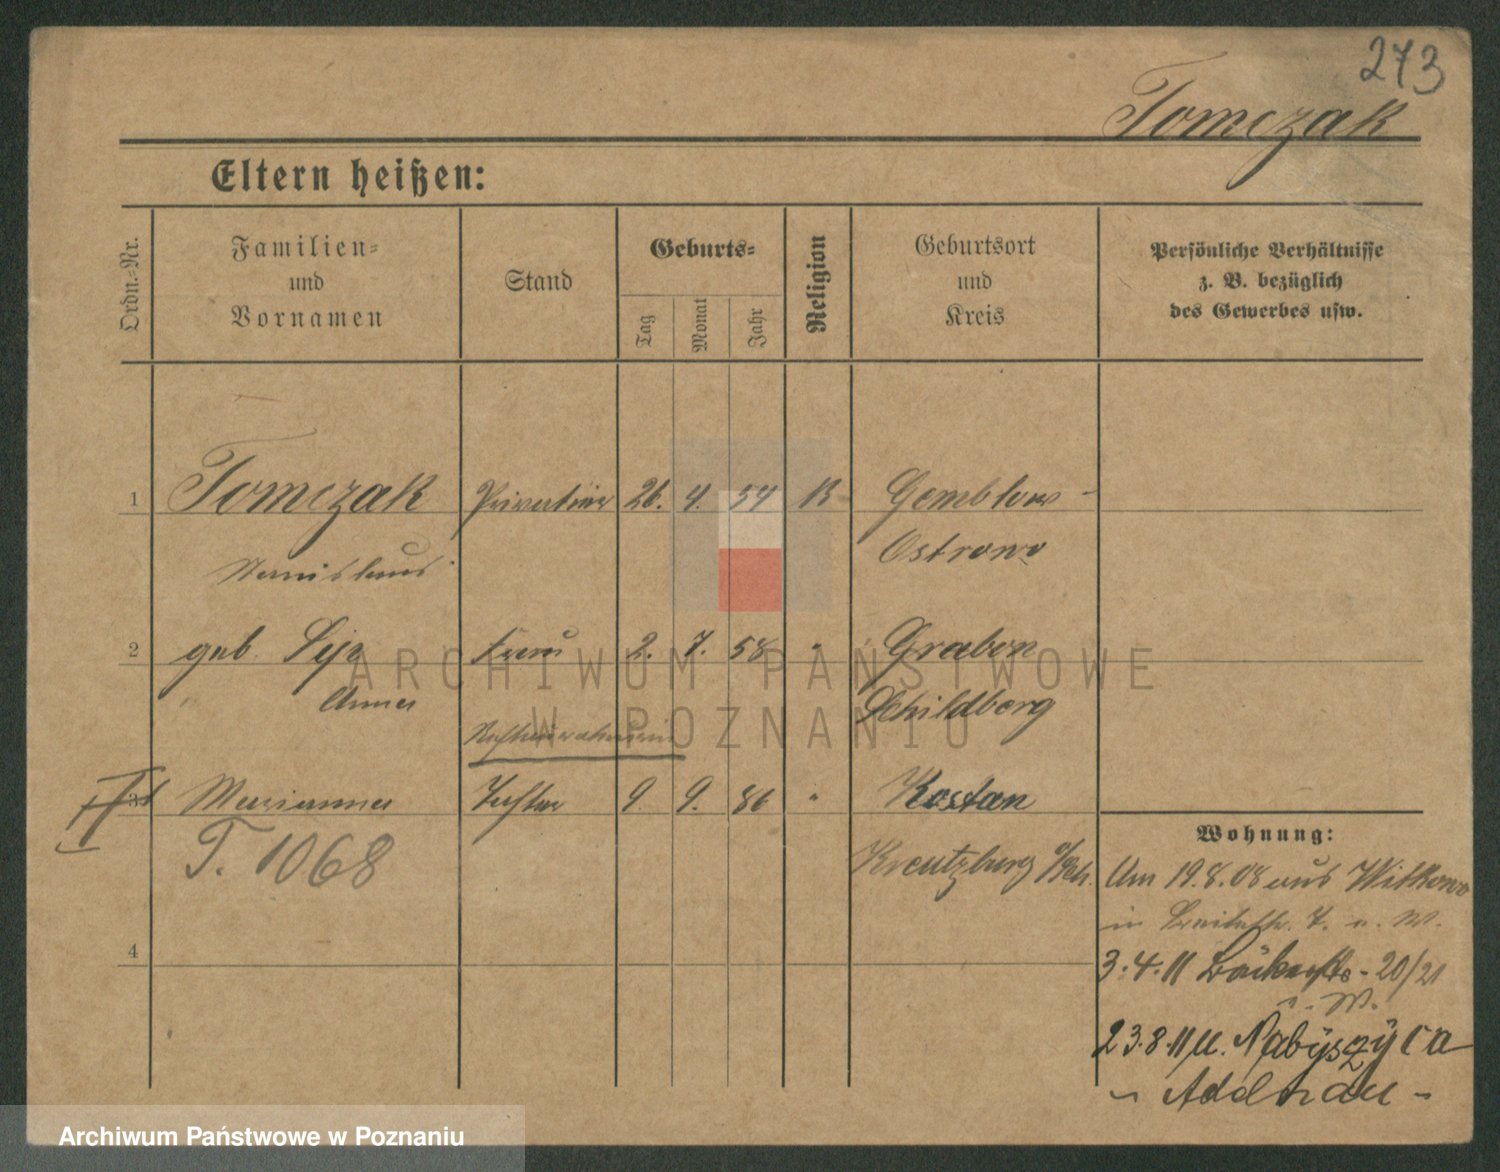 273
Tomczak
Eltern heißen:
Ordn.-Nr.
Familien-
und
Vornamen
Stand
Geburts-
Tag
Monat
Jahr
Religion
Geburtsort
und
Kreis
Persönliche Verhältnisse
z. B. bezüglich
des Gewerbes usw.
1 Tomczak Privatier 26. 4. 54 K
Stanislaus
Ostrowo
2 geb. Frau 2. 7. 58 " Grabow
Anna Schildberg
3 Marianna Tochter 9. 9. 86 " Kostau
T. 1068
Kreutzburg O/Schl.
4
Wohnung:
Am 19.8.08 aus Witkowo
in T. u. W.
3.4.11 Bäckerstr. 20/21
u. W.
23.8.11 n. Nabyszyca
- Adelnau -
ARCHIWUM PAŃSTWOWE
W POZNANIU
Archiwum Państwowe w Poznaniu